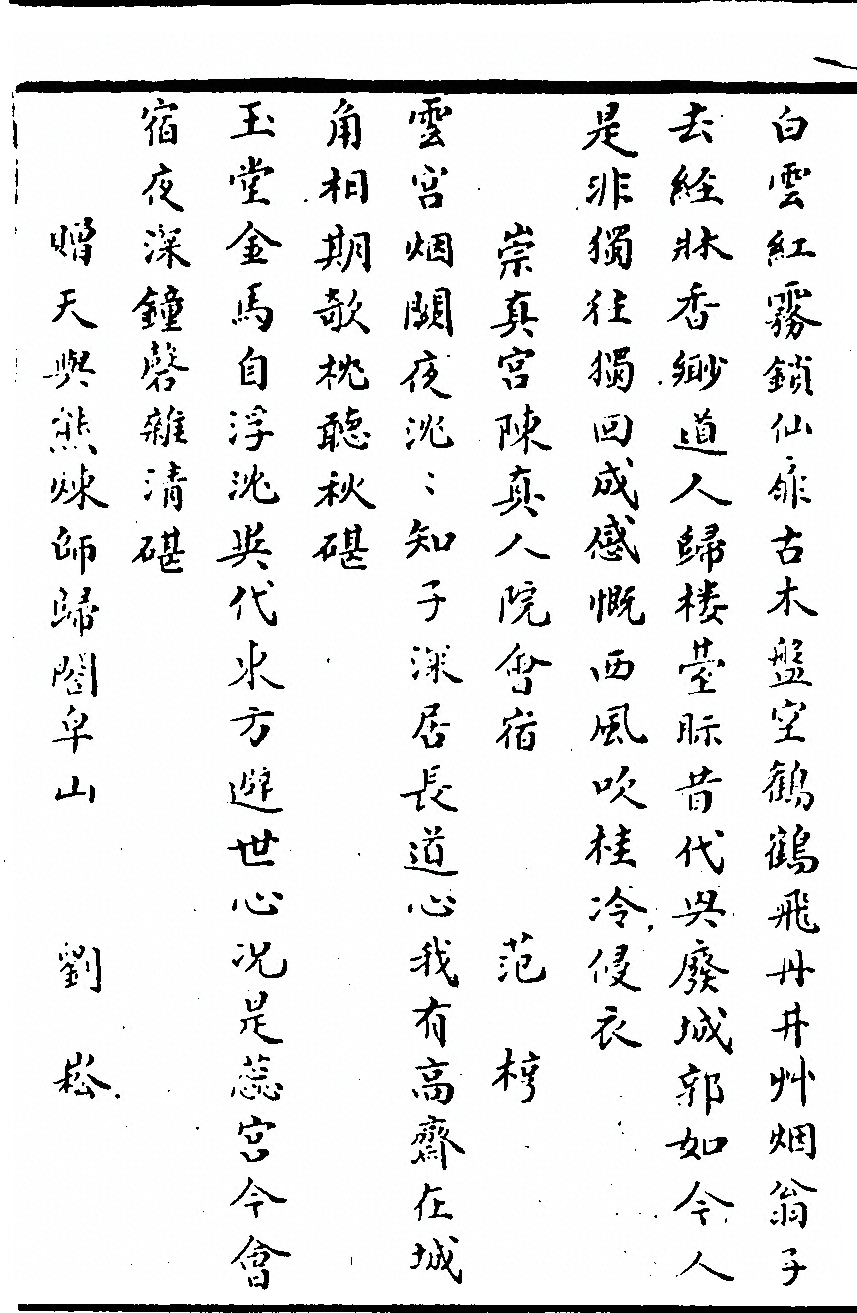 白雲紅霧鎖仙扉古木盤空鶴鶴飛丹井艸烟翁子
去經牀香緲道人歸樓臺眎昔代吳廢城郭如今人
是非獨往獨回成感慨西風吹桂冷侵衣
崇真宮陳真人院會宿 范梈
雲宮烟闃夜沈〻知子深居長道心我有高齋在城
角相期欹枕聽秋碪
玉堂金馬自浮沈異代東方避世心况是蕊宮今會
宿夜深鐘磬雜清碪
贈天與熊煉師歸閤皁山 劉崧